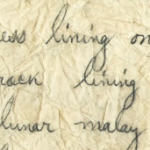 ess lining on
rack lining
lunar malay